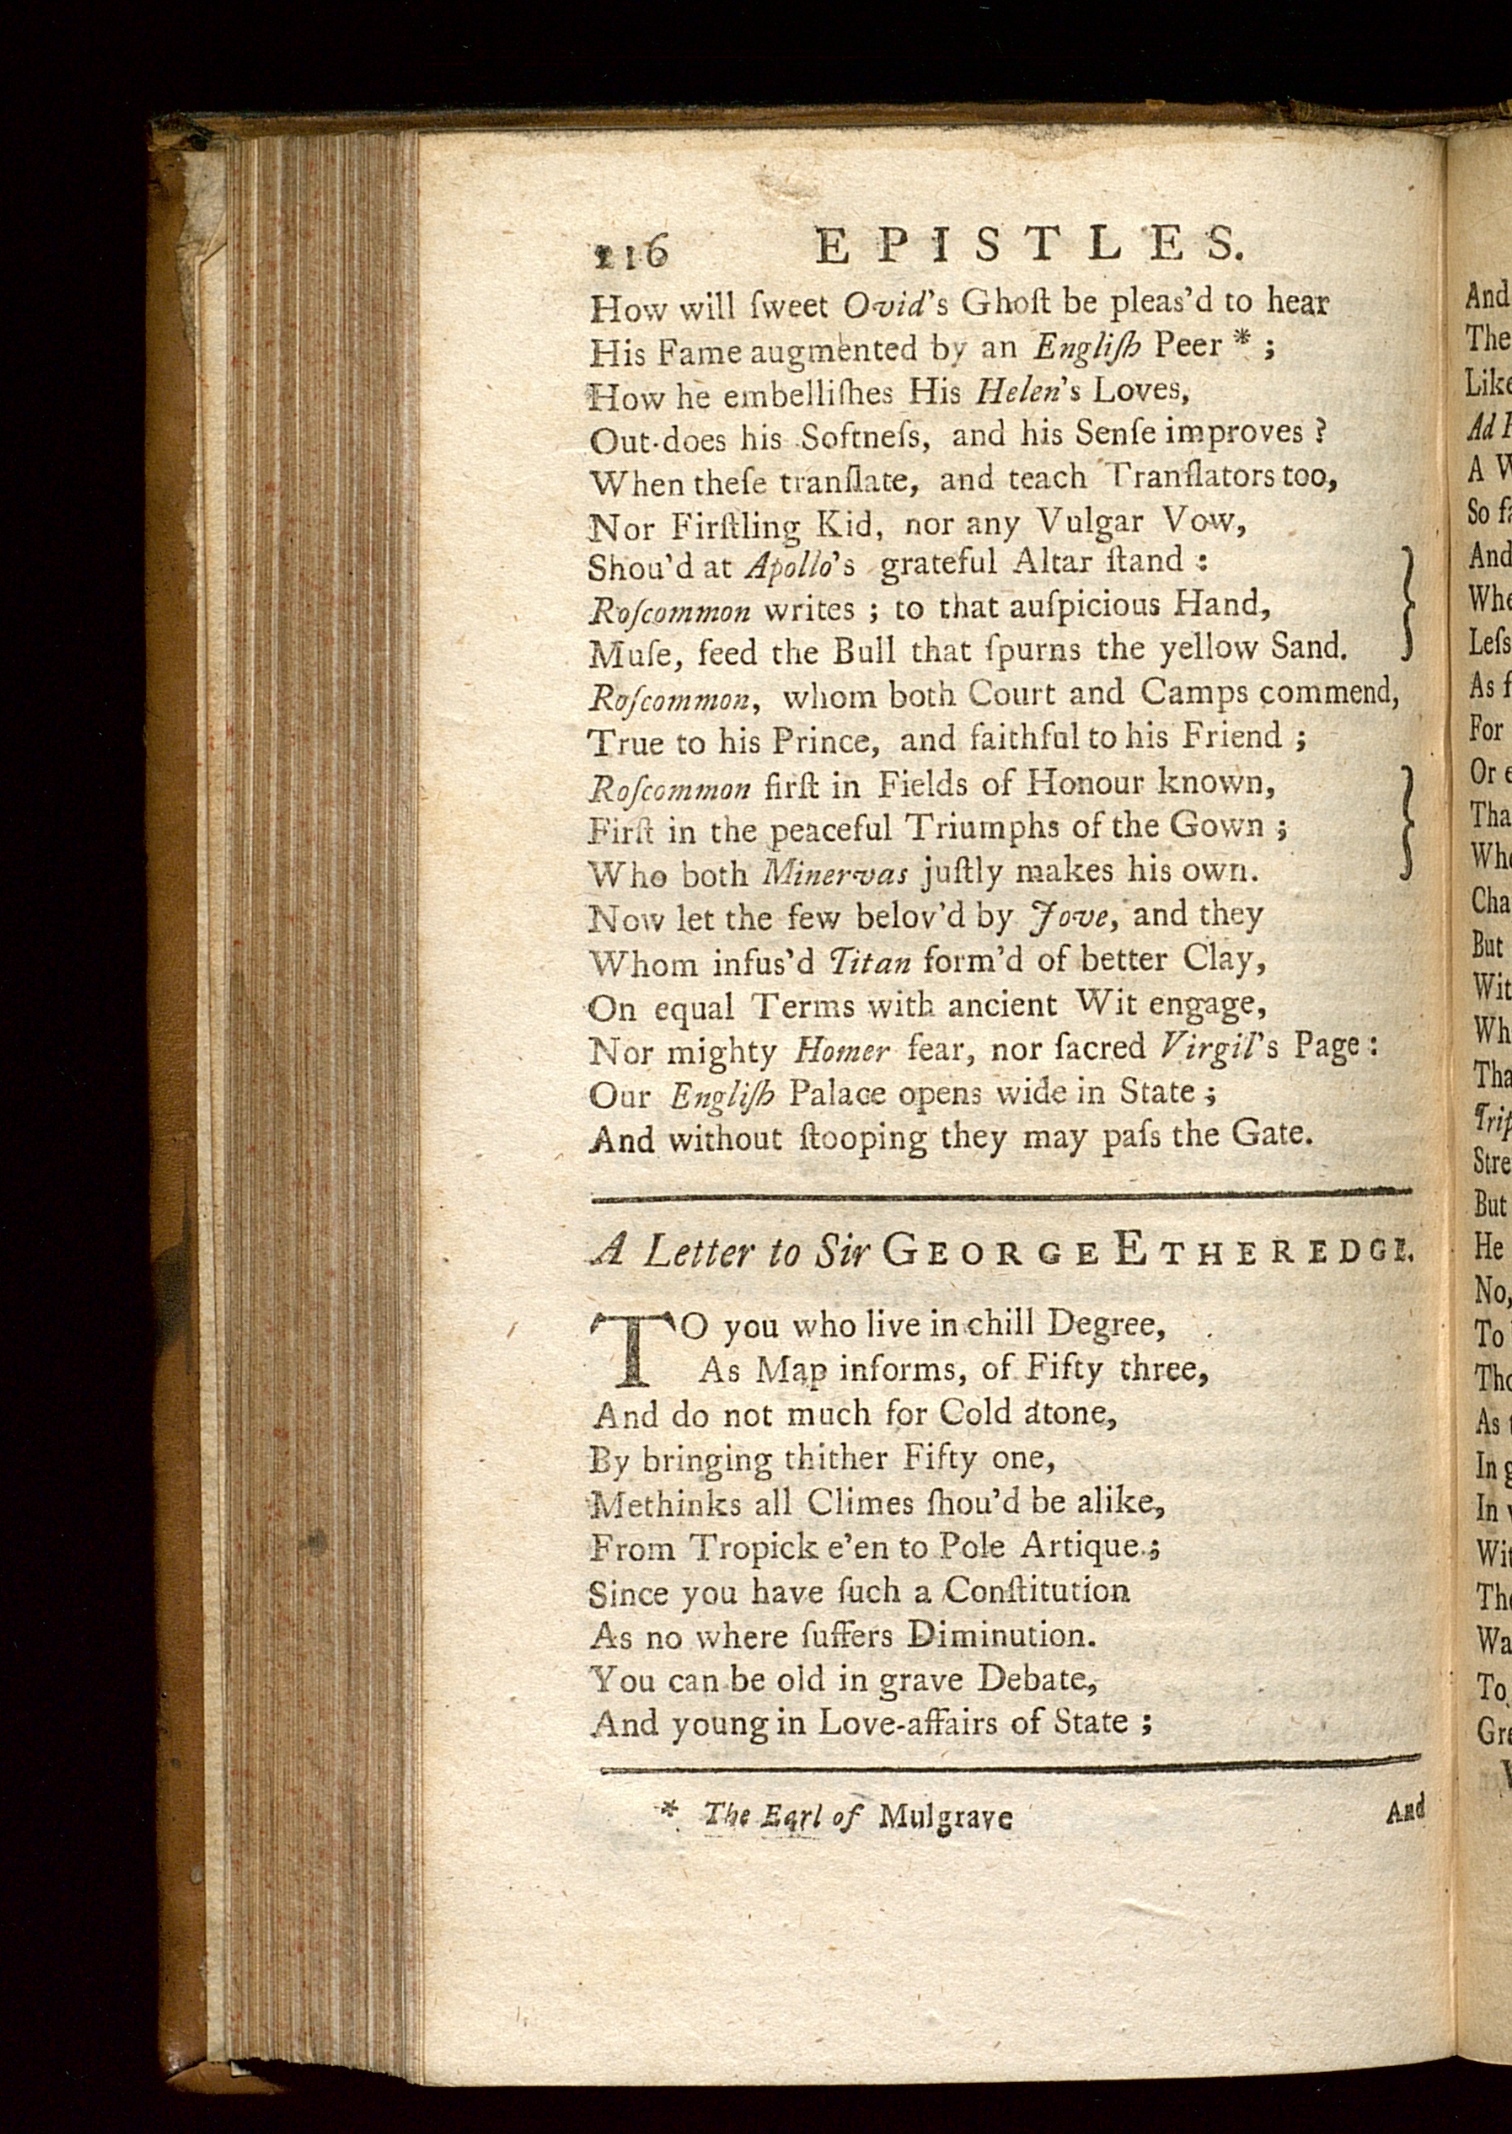 116 EPISTLES.
How will ſweet Ovid's Ghoſt be pleas'd to hear
His Fame augmented by an Engliſh Peer * ;
How he embelliſhes His Helen's Loves,
Out-does his Softneſs, and his Senſe improves ?
When theſe tranſlate, and teach Tranſlators too,
Nor Firſtling Kid, nor any Vulgar Vow,
Shou'd at Apollo's grateful Altar ſtand :
Roſcommon writes ; to that auſpicious Hand,
Muſe, feed the Bull that ſpurns the yellow Sand.
Roſcommon, whom both Court and Camps commend,
True to his Prince, and faithful to his Friend ;
Roſcommon firſt in Fields of Honour known,
Firſt in the peaceful Triumphs of the Gown ;
Who both Minervas juſtly makes his own.
Now let the few belov'd by Jove, and they
Whom infus'd Titan form'd of better Clay,
On equal Terms with ancient Wit engage,
Nor mighty Homer fear, nor ſacred Virgil's Page :
Our Engliſh Palace opens wide in State ;
And without ſtooping they may paſs the Gate.
A Letter to Sir GEORGE ETHEREDGE.
TO you who live in chill Degree,
As Map informs, of Fifty three,
And do not much for Cold atone,
By bringing thither Fifty one,
Methinks all Climes ſhou'd be alike,
From Tropick e'en to Pole Artique ;
Since you have ſuch a Conſtitution
As no where ſuffers Diminution.
You can be old in grave Debate,
And young in Love-affairs of State ;
* The Earl of Mulgrave And
And
The
Like
Ad
A
So
And
Leſs
As
For
Or
But
Wit
But
He
No,
To
As
In
In
To